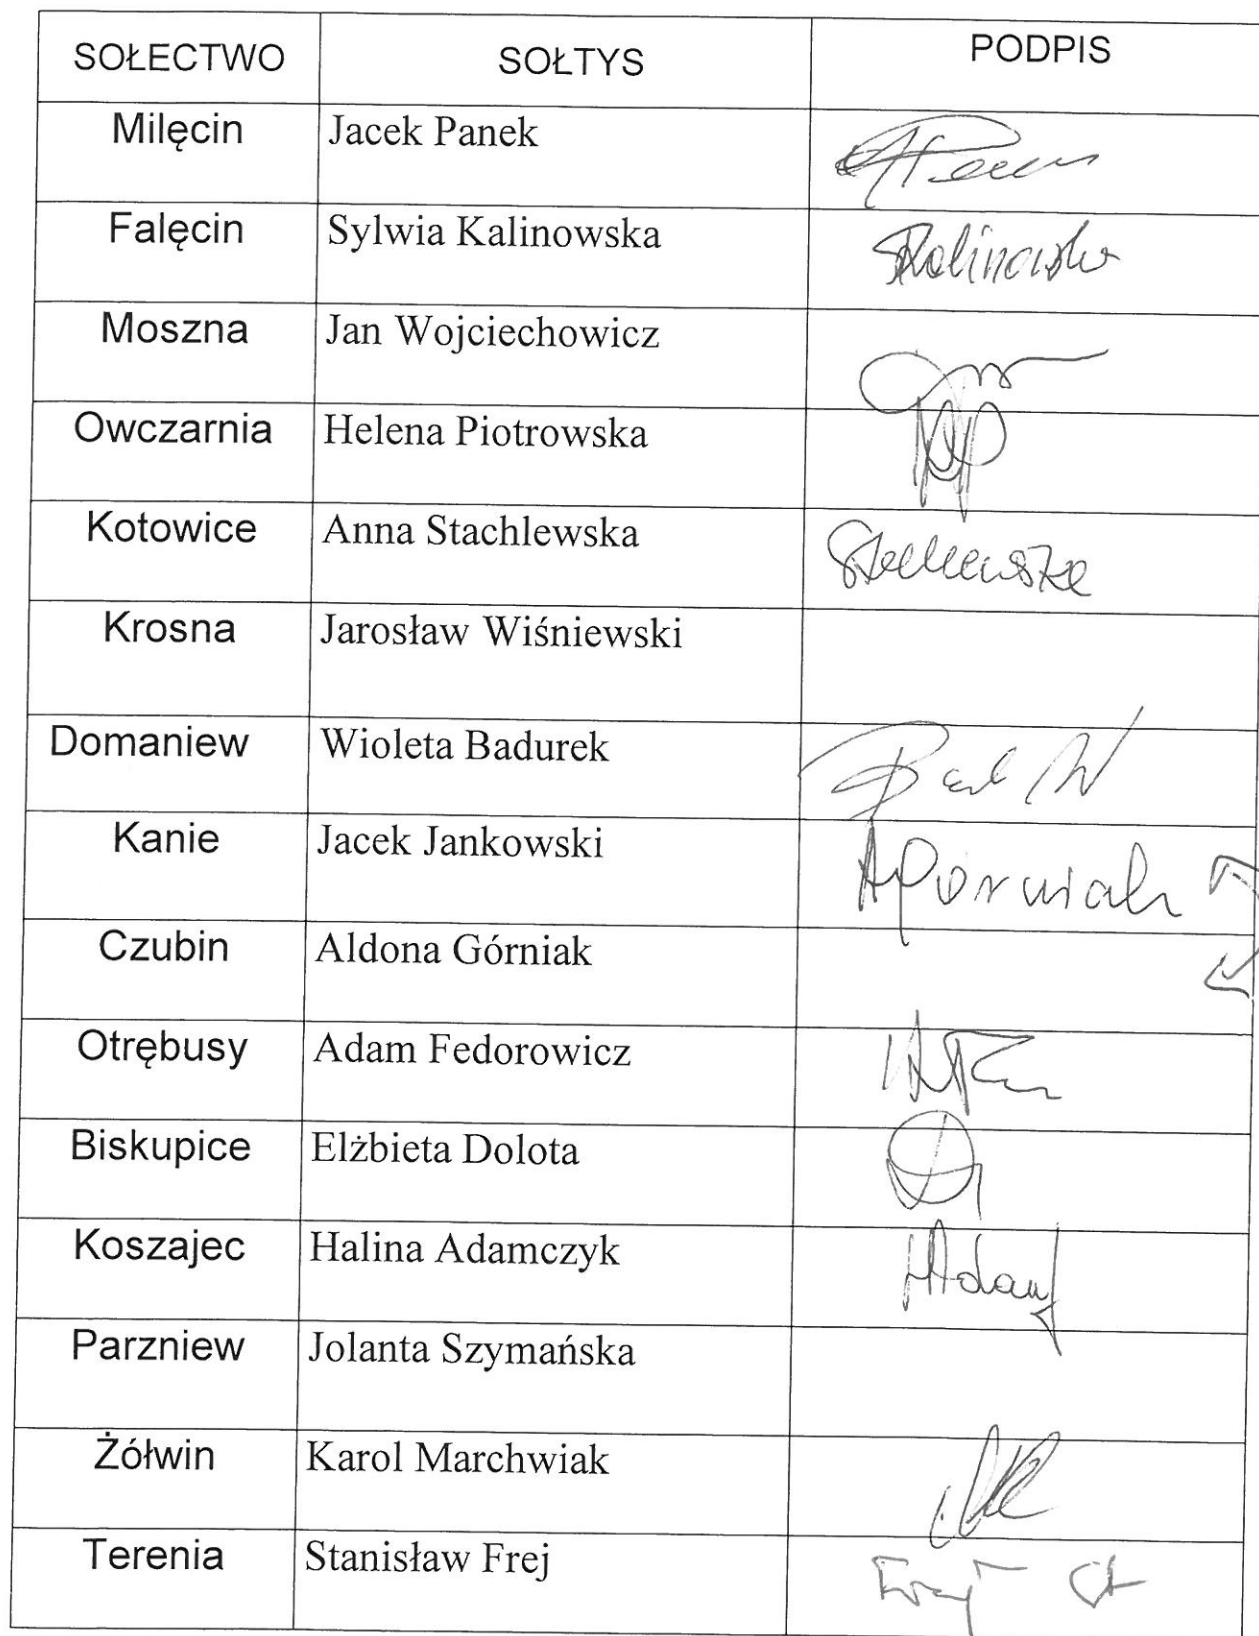 SOŁECTWO SOŁTYS PODPIS
Milęcin Jacek Panek
Falęcin Sylwia Kalinowska SKalinowska
Moszna Jan Wojciechowicz
Owczarnia Helena Piotrowska
Kotowice Anna Stachlewska
Krosna Jarosław Wiśniewski
Domaniew Wioleta Badurek
Kanie Jacek Jankowski
Czubin Aldona Górniak
Otrębusy Adam Fedorowicz
Biskupice Elżbieta Dolota
Koszajec Halina Adamczyk HAdam
Parzniew Jolanta Szymańska
Żółwin Karol Marchwiak
Terenia Stanisław Frej